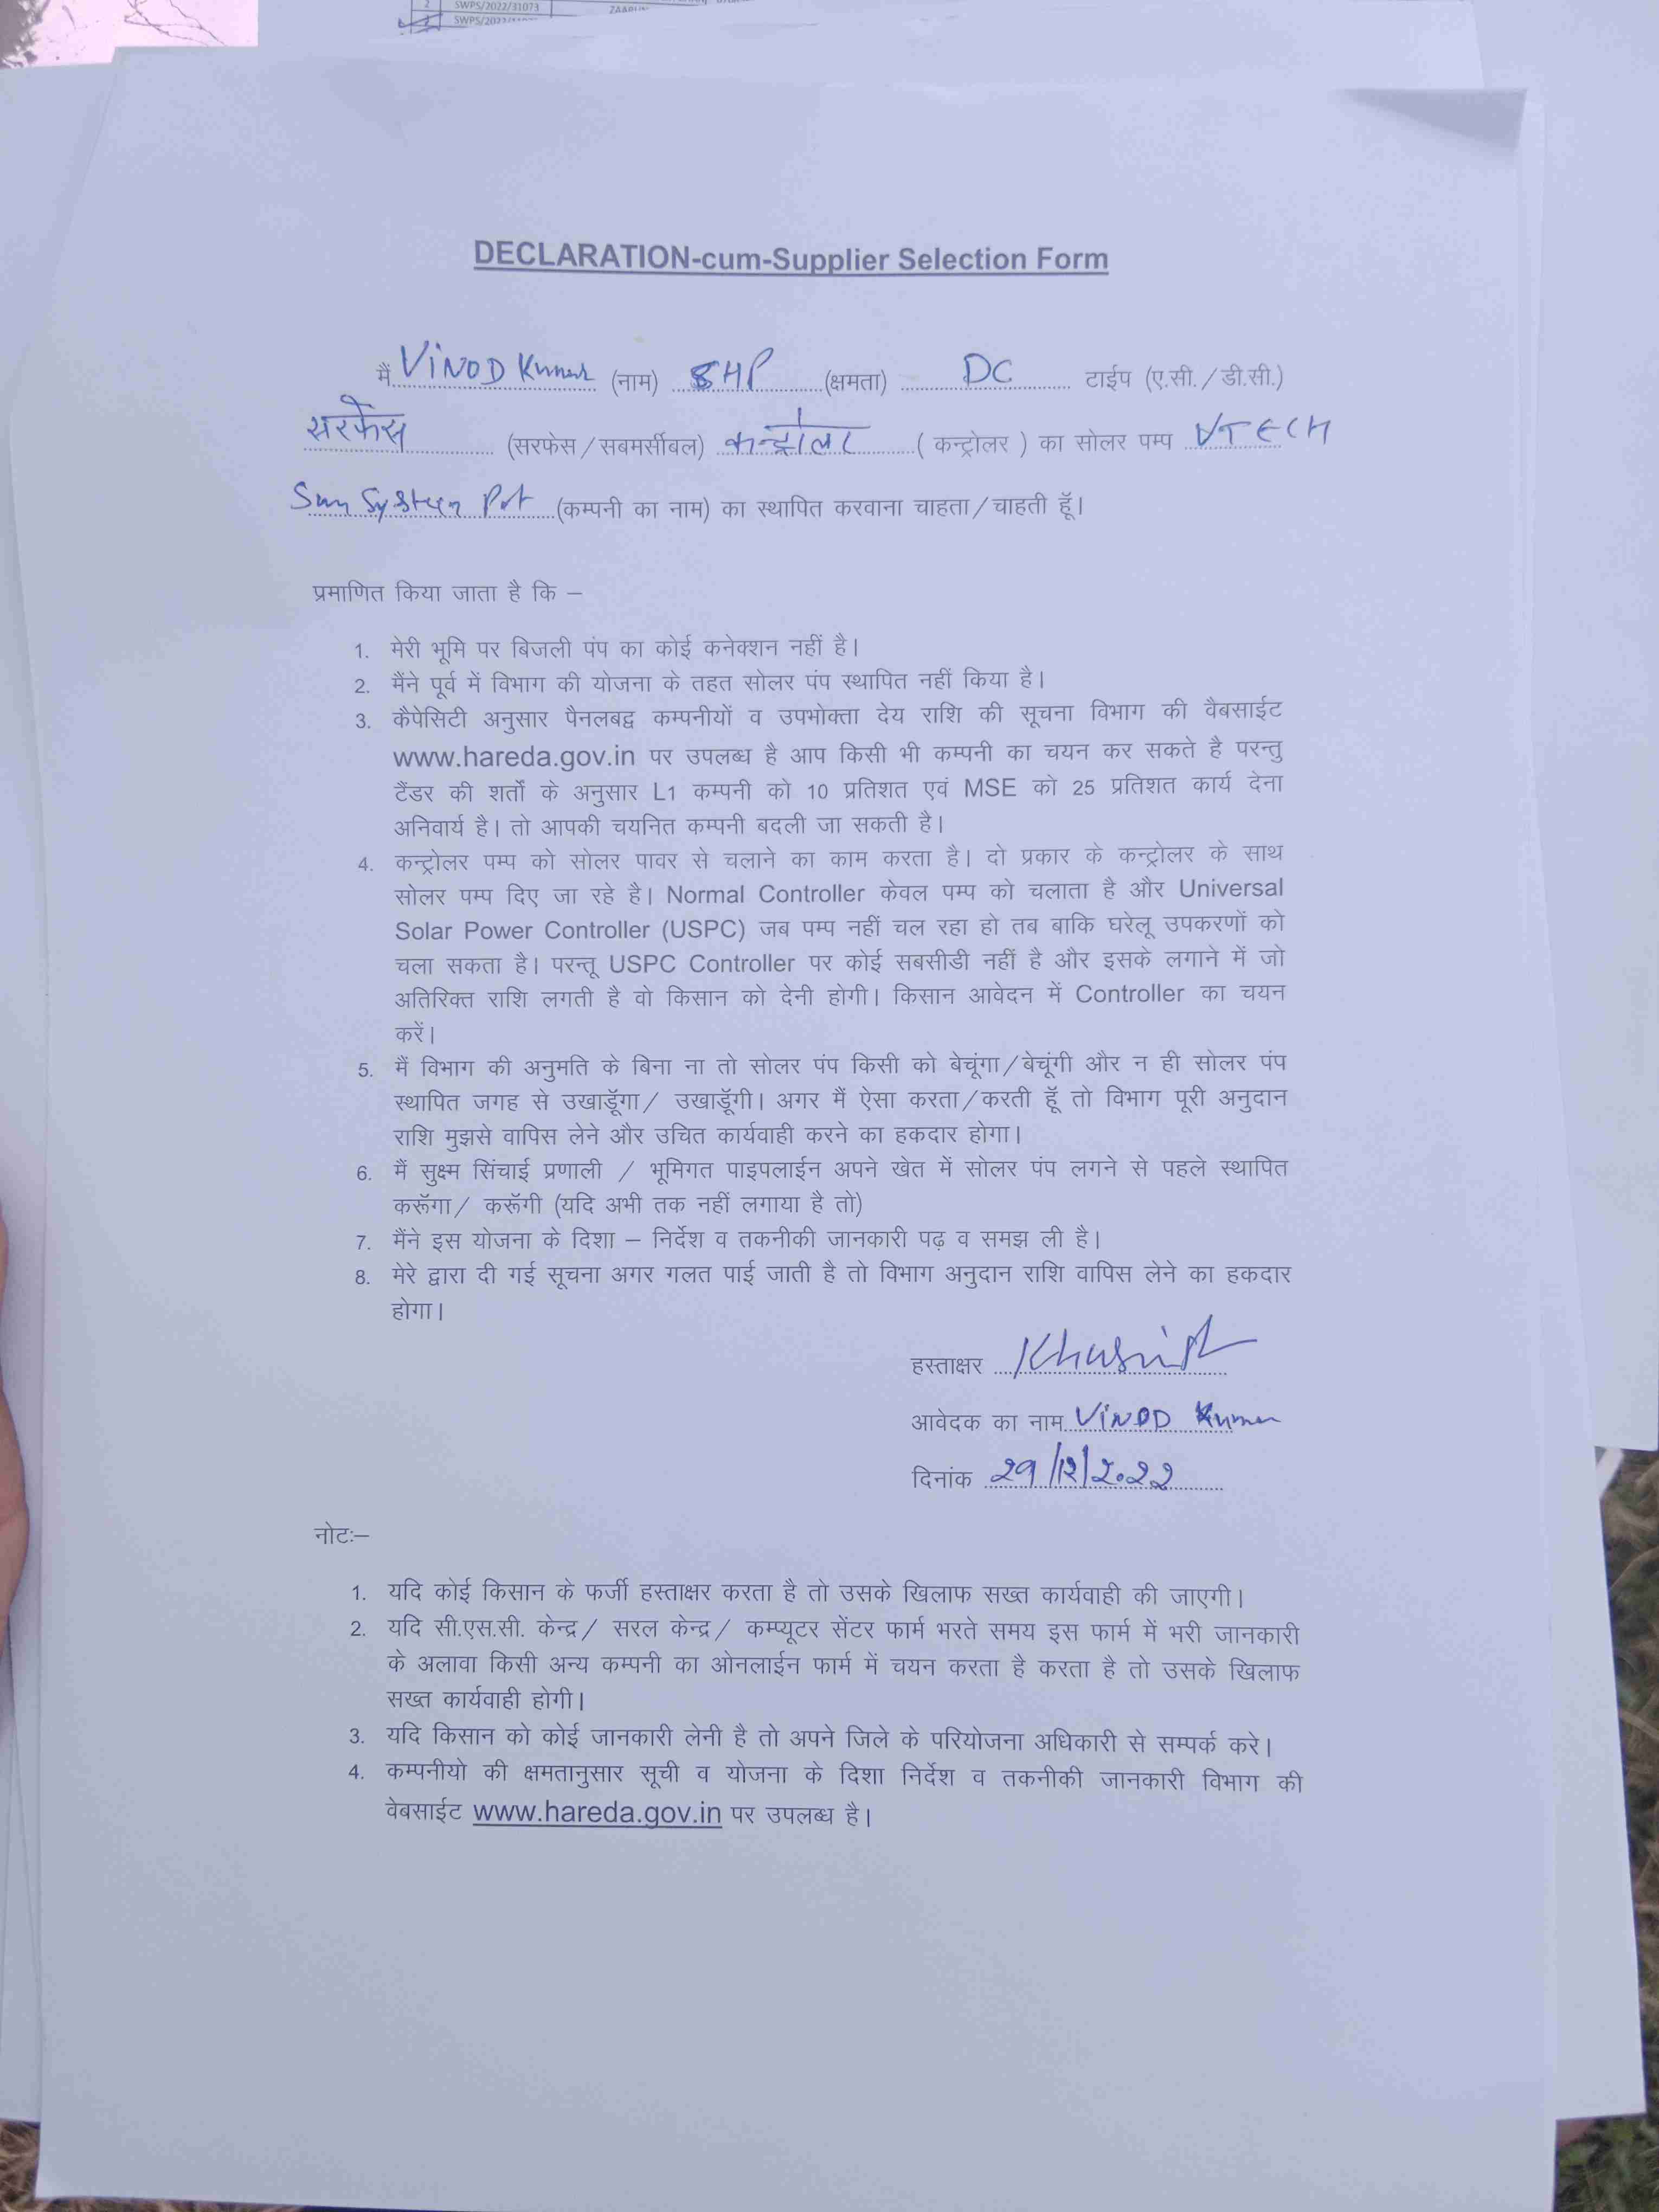 2 SWPS/2022/31073
DECLARATION-cum-Supplier Selection Form
मैं VINOD Kumar (नाम) 8HP (क्षमता) DC टाईप (ए.सी./डी.सी.)
सरफेस (सरफेस/सबमर्सीबल) कन्ट्रोलर ( कन्ट्रोलर ) का सोलर पम्प VTECH
Sun System Pvt (कम्पनी का नाम) का स्थापित करवाना चाहता/चाहती हूँ।
प्रमाणित किया जाता है कि –
1. मेरी भूमि पर बिजली पंप का कोई कनेक्शन नहीं है।
2. मैंने पूर्व में विभाग की योजना के तहत सोलर पंप स्थापित नहीं किया है।
3. कैपेसिटी अनुसार पैनलबद्व कम्पनीयों व उपभोक्ता देय राशि की सूचना विभाग की वैबसाईट
www.hareda.gov.in पर उपलब्ध है आप किसी भी कम्पनी का चयन कर सकते है परन्तु
टैंडर की शर्तों के अनुसार L1 कम्पनी को 10 प्रतिशत एवं MSE को 25 प्रतिशत कार्य देना
अनिवार्य है। तो आपकी चयनित कम्पनी बदली जा सकती है।
4. कन्ट्रोलर पम्प को सोलर पावर से चलाने का काम करता है। दो प्रकार के कन्ट्रोलर के साथ
सोलर पम्प दिए जा रहे है। Normal Controller केवल पम्प को चलाता है और Universal
Solar Power Controller (USPC) जब पम्प नहीं चल रहा हो तब बाकि घरेलू उपकरणों को
चला सकता है। परन्तू USPC Controller पर कोई सबसीडी नहीं है और इसके लगाने में जो
अतिरिक्त राशि लगती है वो किसान को देनी होगी। किसान आवेदन में Controller का चयन
करें।
5. मैं विभाग की अनुमति के बिना ना तो सोलर पंप किसी को बेचूंगा/बेचूंगी और न ही सोलर पंप
स्थापित जगह से उखाडूॅंगा/ उखाडूॅंगी। अगर मैं ऐसा करता/करती हूँ तो विभाग पूरी अनुदान
राशि मुझसे वापिस लेने और उचित कार्यवाही करने का हकदार होगा।
6. मैं सुक्ष्म सिंचाई प्रणाली / भूमिगत पाइपलाईन अपने खेत में सोलर पंप लगने से पहले स्थापित
करूॅंगा/ करूॅंगी (यदि अभी तक नहीं लगाया है तो)
7. मैंने इस योजना के दिशा – निर्देश व तकनीकी जानकारी पढ़ व समझ ली है।
8. मेरे द्वारा दी गई सूचना अगर गलत पाई जाती है तो विभाग अनुदान राशि वापिस लेने का हकदार
होगा।
हस्ताक्षर
आवेदक का नाम VINOD Kumar
दिनांक 29/12/2022
नोटः–
1. यदि कोई किसान के फर्जी हस्ताक्षर करता है तो उसके खिलाफ सख्त कार्यवाही की जाएगी।
2. यदि सी.एस.सी. केन्द्र/ सरल केन्द्र/ कम्प्यूटर सेंटर फार्म भरते समय इस फार्म में भरी जानकारी
के अलावा किसी अन्य कम्पनी का ओनलाईन फार्म में चयन करता है करता है तो उसके खिलाफ
सख्त कार्यवाही होगी।
3. यदि किसान को कोई जानकारी लेनी है तो अपने जिले के परियोजना अधिकारी से सम्पर्क करे।
4. कम्पनीयो की क्षमतानुसार सूची व योजना के दिशा निर्देश व तकनीकी जानकारी विभाग की
वेबसाईट www.hareda.gov.in पर उपलब्ध है।